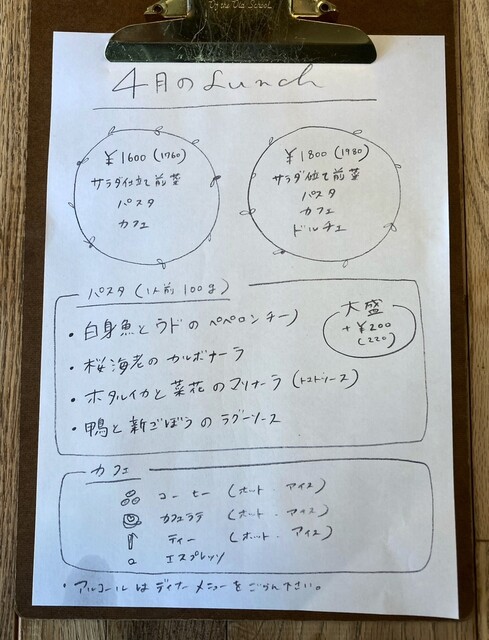 By the Old School.
4月のLunch
¥1600 (1760)
サラダ仕立て前菜
パスタ
カフェ
¥1800 (1980)
サラダ仕立て前菜
パスタ
カフェ
ドルチェ
パスタ (1人前 100g)
大盛
+¥200
(220)
・白身魚とウドのペペロンチーノ
・桜海老のカルボナーラ
・ホタルイカと菜花のマリナーラ (トマトソース)
・鴨と新ごぼうのラグーソース
カフェ
コーヒー (ホット・アイス)
カフェラテ (ホット・アイス)
ティー (ホット・アイス)
エスプレッソ
・アルコールはディナーメニューをごらん下さい。